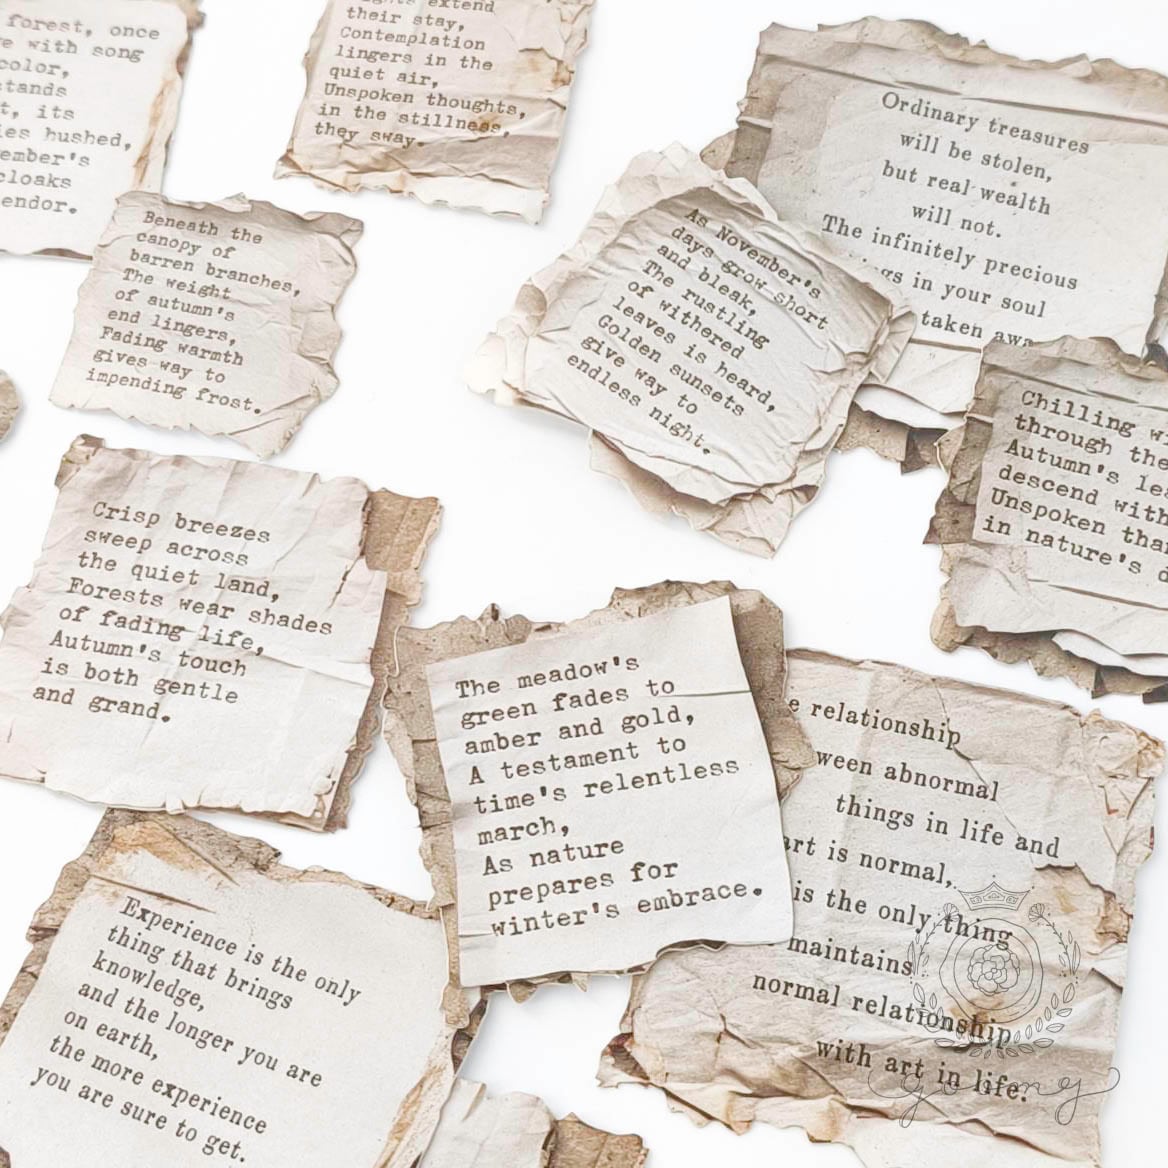 forest, once
with song
color,
stands
its
hushed,
cloaks
extend
their stay,
Contemplation
lingers in the
quiet air,
Unspoken thoughts,
in the stillness,
they sway.
Ordinary treasures
will be stolen,
but real wealth
will not.
The infinitely precious
in your soul
taken
Beneath the
canopy of
barren branches,
The weight
of autumn's
end lingers,
Fading warmth
gives way to
impending frost.
As November's
days grow short
and bleak,
The rustling
of withered
leaves is heard,
Golden sunsets
give way to
endless night.
Chilling
through the
Autumn's
descend
Unspoken
in nature's
Crisp breezes
sweep across
the quiet land,
Forests wear shades
of fading life,
Autumn's touch
is both gentle
and grand.
The meadow's
green fades to
amber and gold,
A testament to
time's relentless
march,
As nature
prepares for
winter's embrace.
relationship
abnormal
things in life and
art is normal,
is the only thing
maintains
normal relationship
with art in life.
Experience is the only
thing that brings
knowledge,
and the longer you are
on earth,
the more experience
you are sure to get.